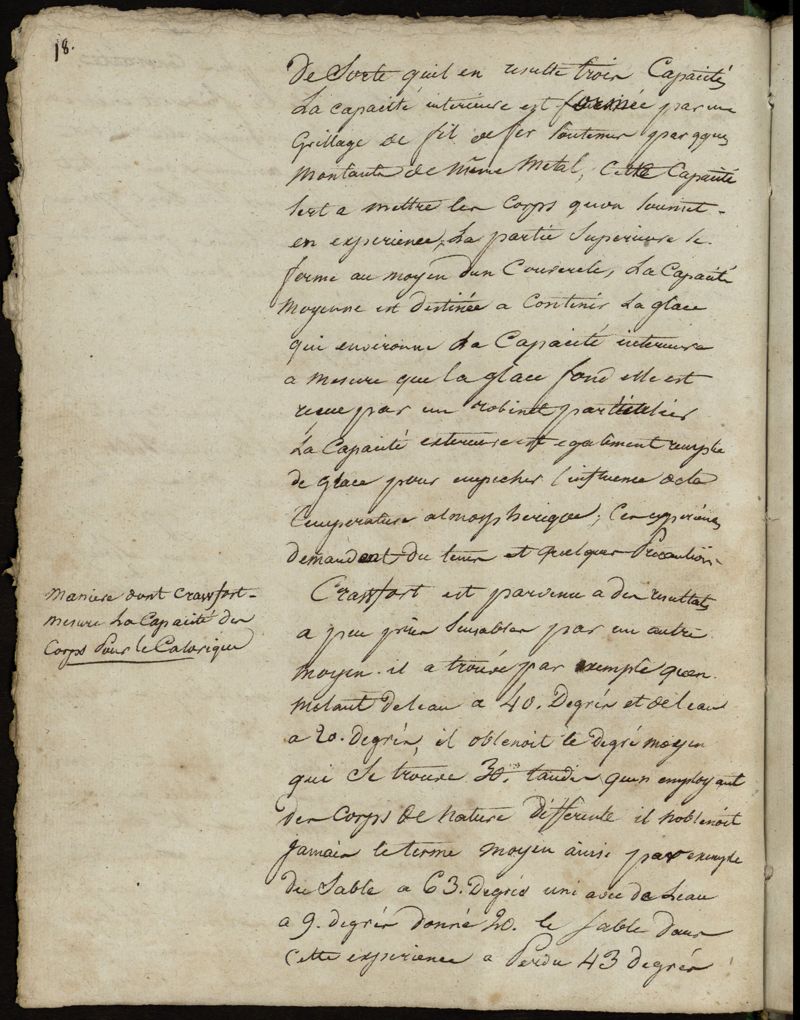 18.
De Sorte quil en resulte trois Capacités
La capacité interieure est formée par une
Grillage de fil de fer Soutenus par qques
Montants de même Metal, Cette Capacité
Sert a mettre les Corps quon Soumet
en experience, La partie Superieure se
ferme au moyen dun Couvercle, La Capacité
Moyenne est destinée a Contenir La glace
qui environne La Capacité interieure
a mesure que la glace fond elle est
recue par un robinet particulier
La Capacité exterieure est egalement remplie
de glace pour empecher l'influence de la
Temperature atmospherique; Ces experiences
demandent du tems et quelques Precautions
Maniere dont Crawfort
mesure La Capacité des
Corps Pour le Calorique
Crawfort est parvenu a des resultats
a peu près Semblables par un autre
moyen. il a trouvé par exemple quen
melant de leau a 40. Degrés et de leau
a 20. degrés, il obtenoit le degré moyen
qui Se trouve 30. tandis quen employant
des Corps de nature Differente il nobtenoit
jamais le terme moyen ainsi par exemple
du Sable a 63. Degrés uni avec de Leau
a 9. degrés donné 20. le Sable dans
Cette experience a Perdu 43 degrés